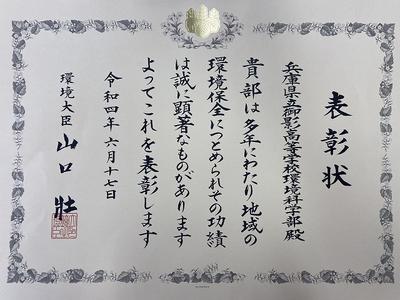 表彰状
兵庫県立御影高等学校環境科学部殿
貴部は多年にわたり地域の
環境保全につとめられその功績
は誠に顕著なものがあります
よってこれを表彰します
令和四年六月十七日
環境大臣 山口壯